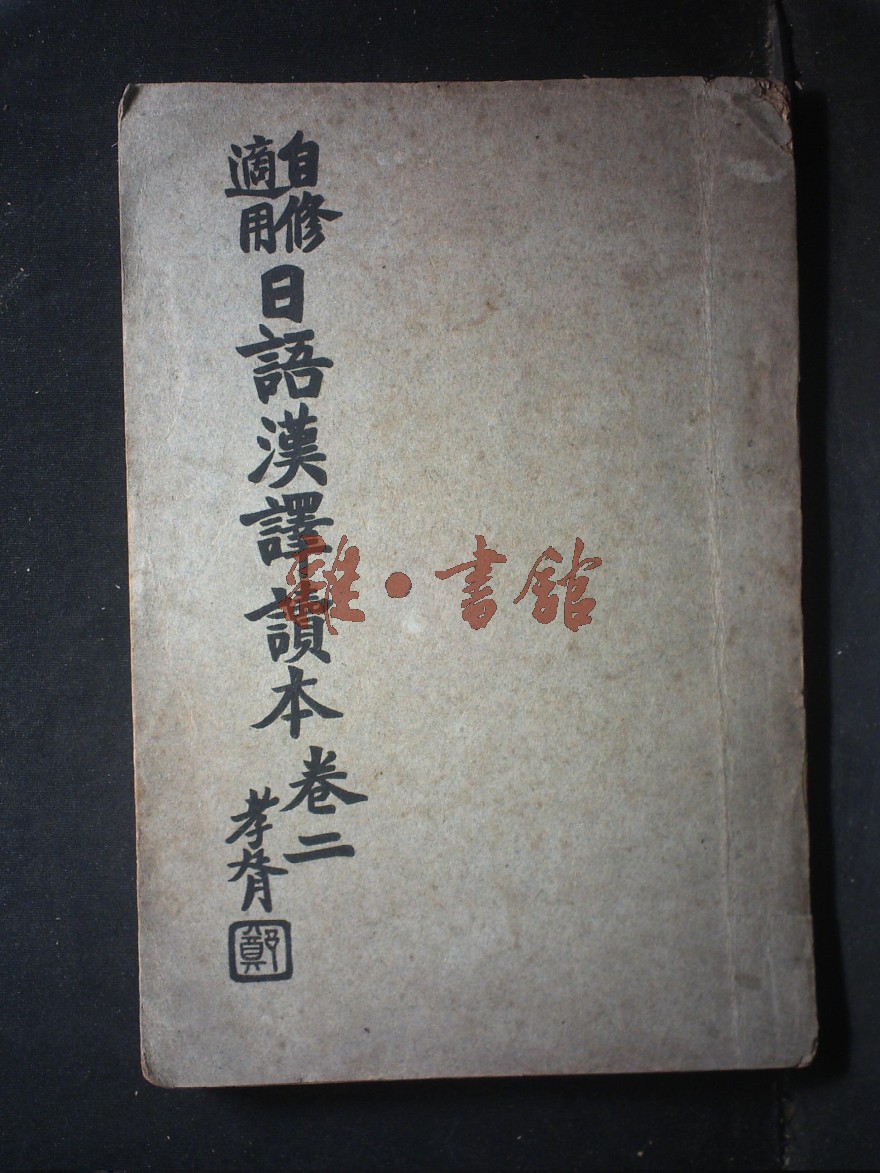 自修
適用
日語漢譯讀本 卷二
孝胥
鄭
雜·書館